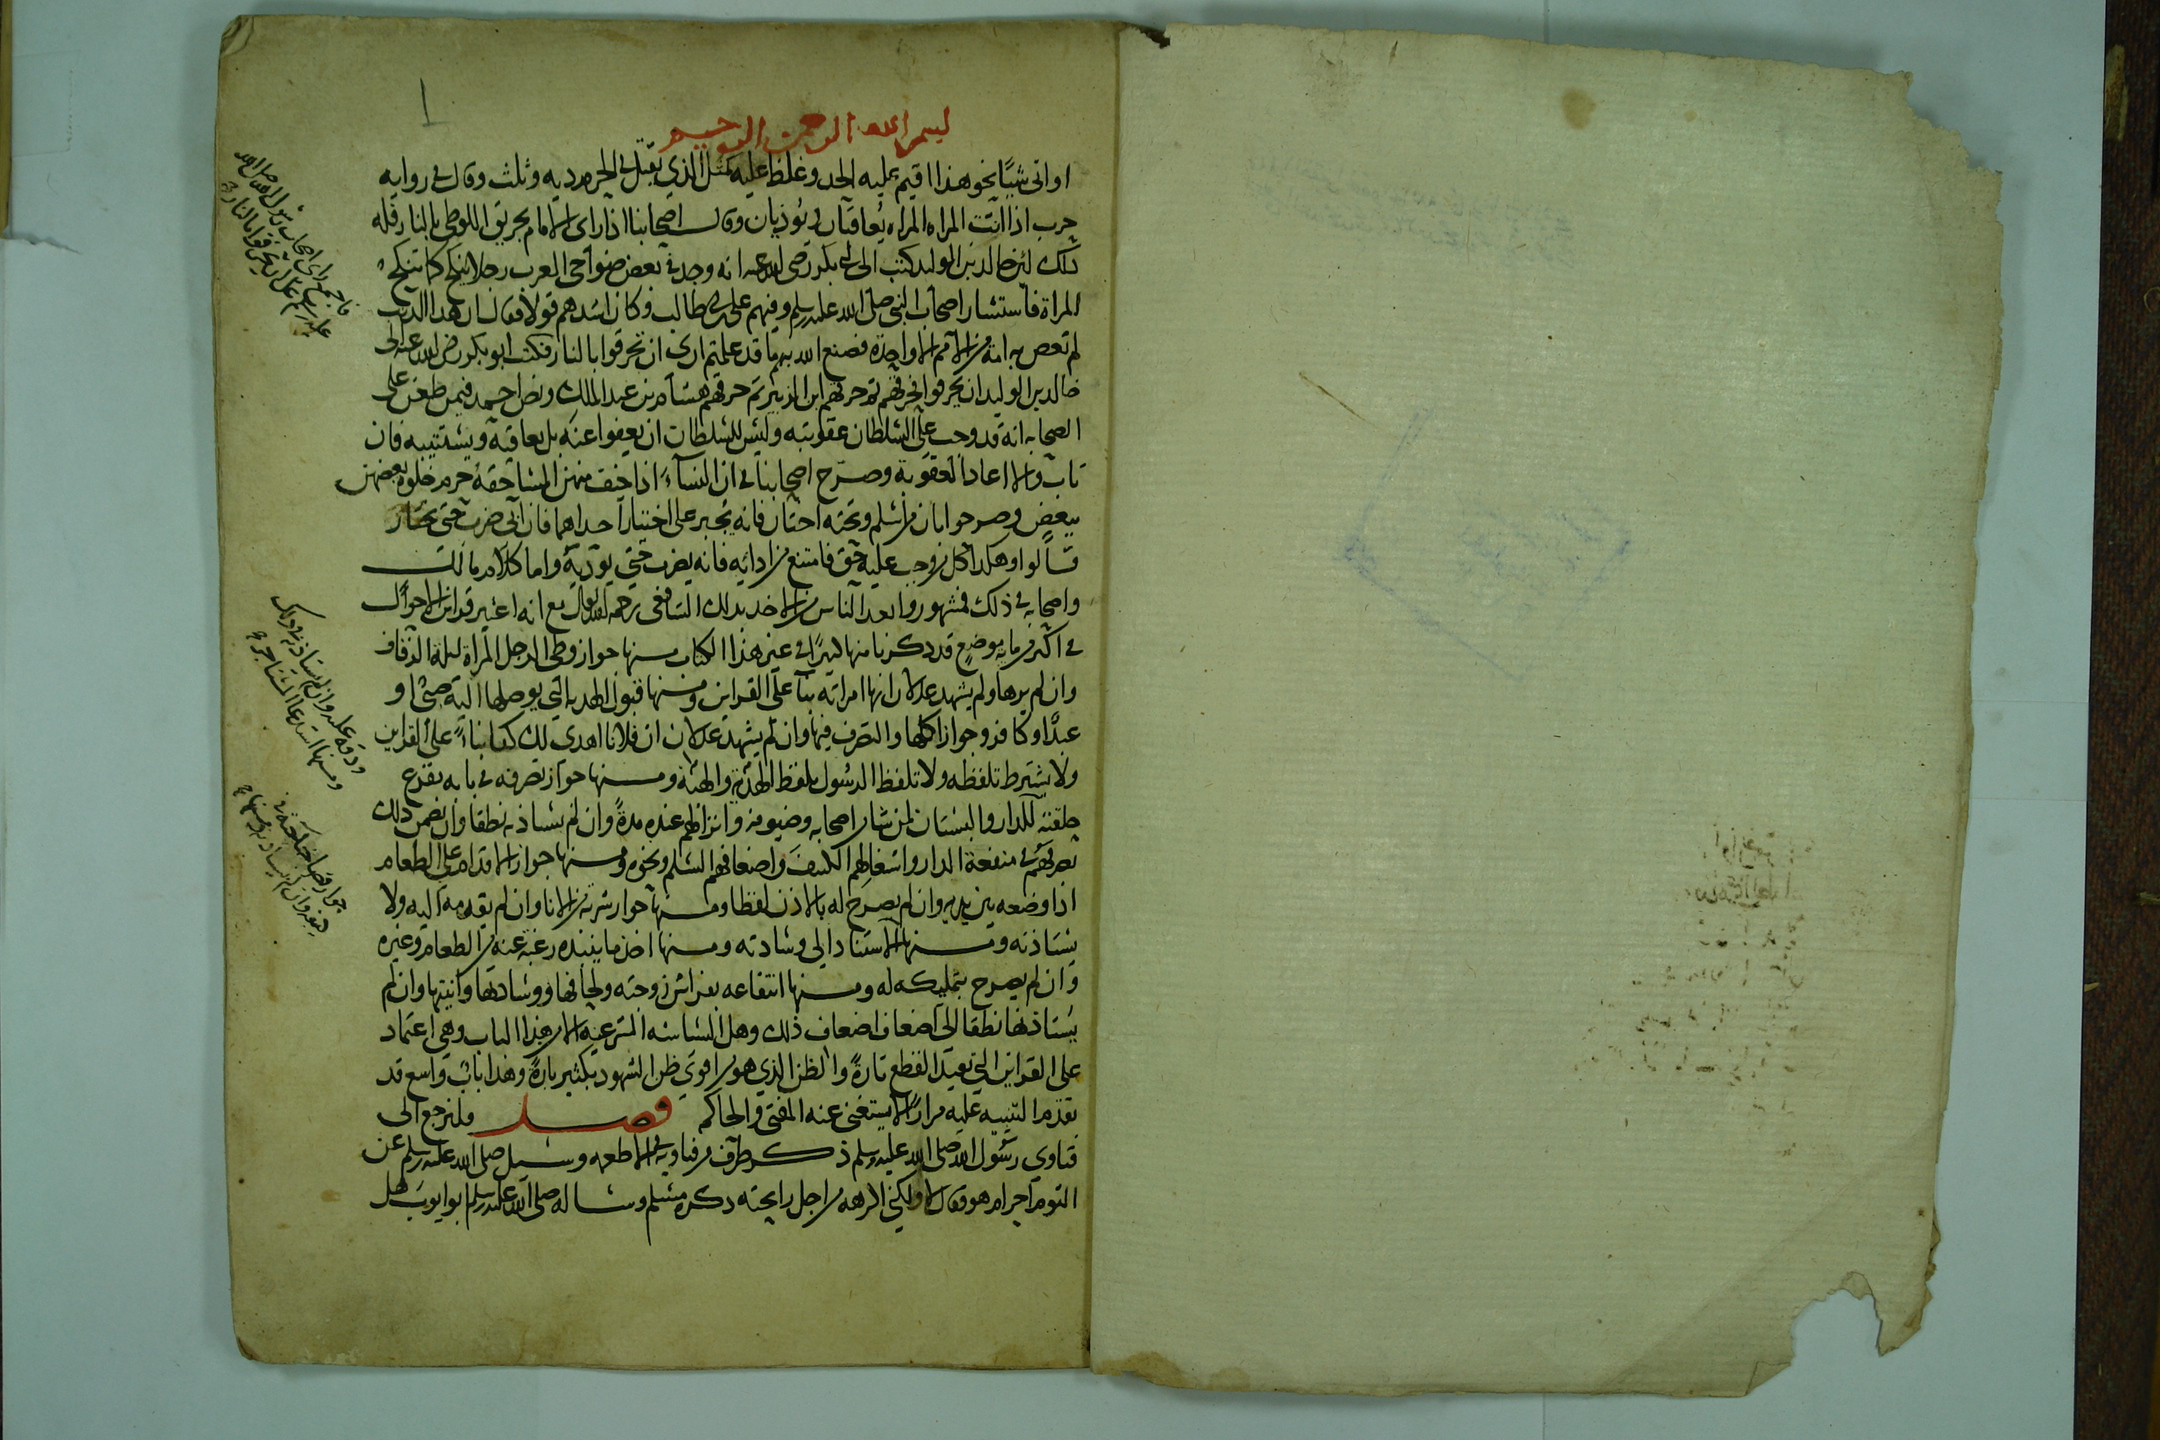 بسم الله الرحمن الرحيم
او اتى شيئًا نحو هذا اقيم عليه الحد وغلظ عليه مثل الذي يقتل في الحرم دية وثلث وقال في رواية
حرب اذا اتت المراه المراه يعاقبان ويؤدبان وقال اصحابنا اذا راى الامام تحريق اللوطي بالنار فله
ذلك لان خالد بن الوليد كتب الى ابي بكر رضي الله عنه انه وجد في بعض ضواحي العرب رجلا ينكح كما تنكح
المراة فاستشار اصحاب النبي صلى الله عليه وسلم وفيهم علي بن ابي طالب وكان اشدهم قولا فقال ان هذا الذنب
لم تعص به امة من الامم الا واحدة فصنع الله بهم ما قد علمتم ارى ان تحرقوا بالنار فكتب ابو بكر رضي الله عنه الى
خالد بن الوليد ان يحرقوا فحرقهم ثم حرقهم ابن الزبير ثم حرقهم هشام بن عبد الملك ونص احمد فيمن طعن على
الصحابه انه قد وجب على السلطان عقوبته وليس للسلطان ان يعفوا عنه بل يعاقبه ويستتيبه فان
تاب والا اعاد العقوبة وصرح اصحابنا في ان النساء اذا خيف منهن المساحقة حرم خلوة بعضهن
ببعض وصرحوا بان من اسلم وتحته اختان فانه يجبر على اختيار احداهما فان ابى ضرب حتى يختار
قالوا وهكذا كل من وجب عليه حق فامتنع من ادائه فانه يضرب حتى يؤديه واما كلام مالك
واصحابه في ذلك فمشهور وابعد الناس من الاخذ بذلك الشافعي رحمه الله تعالى مع انه اعتبر قراين الاحوال
في اكثر من مايه موضع قد ذكرنا منها كثيرًا في غير هذا الكتاب منها جواز وطي الرجل المراة ليلة الزفاف
وان لم يرها ولم يشهد عدلان انها امراته بنآ على القراين ومنها قبول الهدية التي يوصلها اليه صبي او
عبد او كافر وجواز اكلها والتصرف فيها وان لم يشهد عدلان ان فلانا اهدى لك كذا بناءً على القراين
ولا يشترط تلفظه ولا تلفظ الرسول بلفظ الهدية والهبة ومنها جواز تصرفه في بابه بقرع
حلقته للدار والبستان لمن شا من اصحابه وضيوفه وانزالهم عنده مدةً وان لم يستاذنه نطقا وان تضمن ذلك
تصرفهم في منفعة الدار واشغالهم الكنيف واضعافهم السلم ونحوه ومنها جواز الاقدام على الطعام
اذا وضعه بين يديه وان لم يصرح له بالاذن لفظا ومنها جواز شربه من الانا وان لم يقدمه اليه ولا
يستاذنه ومنها الاستناد الى وسادته ومنها اخذ ما ينبذه رغبة عنه من الطعام وغيره
وان لم يصرح بتمليكه له ومنها انتفاعه بفراش زوجته ولحافها ووسادتها وانيتها وان لم
يستاذنها نطقا الى اضعاف اضعاف ذلك وهل السياسه الشرعية الا من هذا الباب وهي اعتماد
على القراين التي تفيد القطع تارةً والظن الذي هو اقوى من ظن الشهود بكثير تارةً وهذا باب واسع قد
تقدم التنبيه عليه مرارًا لا يستغنى عنه المفتي والحاكم فصل ولنرجع الى
فتاوى رسول الله صلى الله عليه وسلم ذكر طرف من فتاويه في الاطعمه وسئل صلى الله عليه وسلم عن
الثوم احرام هو فقال لا ولكني اكرهه من اجل رايحته ذكره مسلم وساله صلى الله عليه وسلم ابو ايوب هل
فاجمع راي اصحاب رسول الله صلى الله
عليه وسلم على ان يحرقوا بالنار
ودقه عليه وان لم يستاذنه في ذلك
ومنها استدعا المستاجر